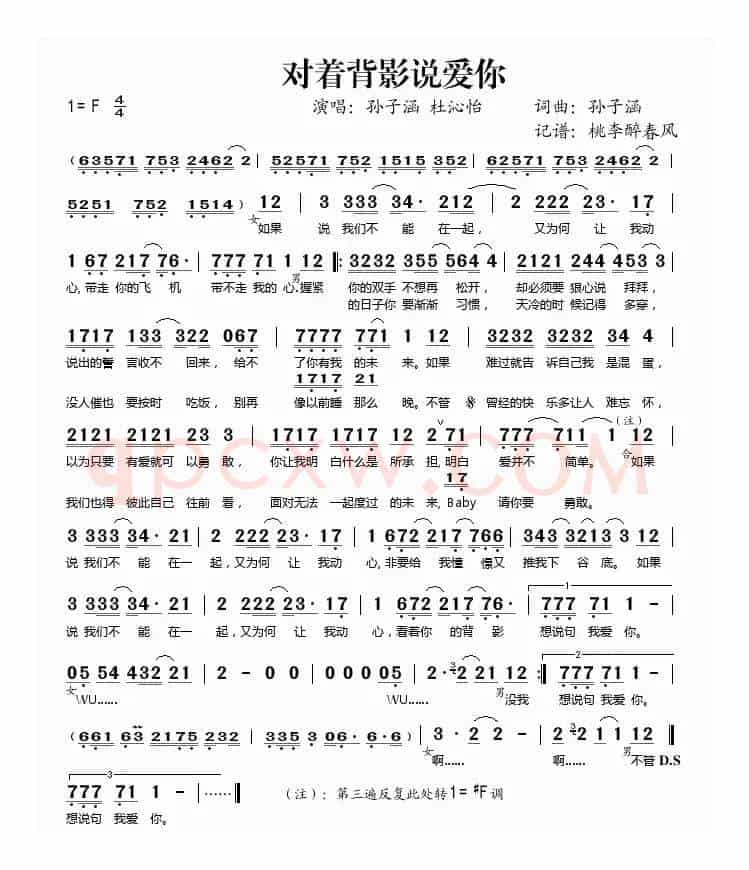 对着背影说爱你
1= F 4/4 演唱：孙子涵 杜沁怡 词曲：孙子涵
记谱：桃李醉春风
（63571 753 2462 2 | 52571 752 1515 352 | 62571 753 2462 2 |
5251 752 1514）女 12 | 3 333 34· 212 | 2 222 23· 17 |
如果 说 我们不 能 在一起， 又为何 让 我动
1 67 217 76· | 777 71 1 男 12 |: 3232 323 55 564 4 | 2121 221 244 453 3 |
心，带走 你的飞 机 带不走 我的 心。握紧 你的双手 不想再 松开， 却必须要 狠心说 拜拜，
的日子你 要渐渐 习惯， 天冷的时 候记得 多穿，
1717 133 322 067 | 7777 771 1 12 | 3232 3232 34 4 |
说出的誓 言收不 回来，给不 了你有我 的未 来。如果 难过就告 诉自己我 是混 蛋，
1717 21
没人催也 要按时 吃饭，别再 像以前睡 那么 晚。不管 𝄋 曾经的快 乐多让人 难忘 怀，
2121 2121 23 3 | 1717 1717 12 71 | 777 711 1 （注） 合 12 |
以为只要 有爱就可 以勇 敢， 你让我明 白什么是 所承 担，明白 爱并不 简单。 如果
17
我们也得 彼此自己 往前 看， 面对无法 一起度过 的未 来，Baby 请你要 勇敢。
3 333 34· 21 | 2 222 23· 17 | 1 672 217 766 | 343 3213 3 12 |
说 我们不 能 在一 起，又为何 让 我动 心，非要给 我憧 憬又 推我下 谷底。如果
3 333 34· 21 | 2 222 23· 17 | 1 672 217 76· | 1 777 71 1 - |
说 我们不 能 在一 起，又为何 让 我动 心，看着你 的背 影 想说句 我爱 你。
05 54 432 21 | 2 - 0 0 | 0 0 0 05 | 2· 2 21 12 :| 2 777 71 1 - |
女 WU...... WU...... 男 没我 想说句 我爱 你。
（661 63 2175 232 | 335 3 06· 6·6）| 3· 2 2 - | 2· 2 11 12 ‖
女 啊...... 啊...... 男 不管 D.S
3 777 71 1 - | - - - - ‖ （注）：第三遍反复此处转1= #F 调
想说句 我爱 你。
qpcxw.COM